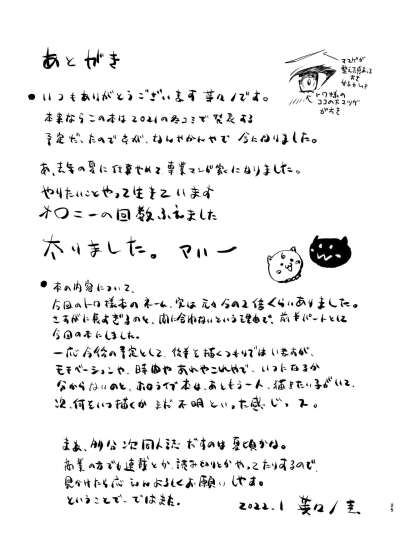 あとがき
ママゲが
トワ様の
ココの下マツゲ
が大き
●いつもありがとうございます 葵ノです。
本来ならこの本は2021の冬コミで発表する
予定だったのですが、なんやかんやで今になりました。
あ、去年の夏に仕事やめて専業マンガ家になりました。
やりたいことやって生きています
オロニーの回数ふえました
太りました。アハー
●本の内容について、
今回のトワ様本のネーム、実は元々今の2倍くらいありました。
さすがに長すぎるのと、間に合わないという理由で、前半パートとして
今回の本にしました。
一応今後の予定として、後半も描くつもりではいますが、
モチベーションや、時間や あれやこれやで、いつになるか
分からないのと、ホロライブ本は、あともう一人、描きたい子がいて、
次、何をいつ描くか まだ 不明といった感じっス。
まぁ、多分次同人誌だすのは夏頃かね。
商業の方でも連載とか、読み切りとかやってたりするので、
見かけたら応えんよろしくお願いしやす。
ということで ではまた。
2022.1
25